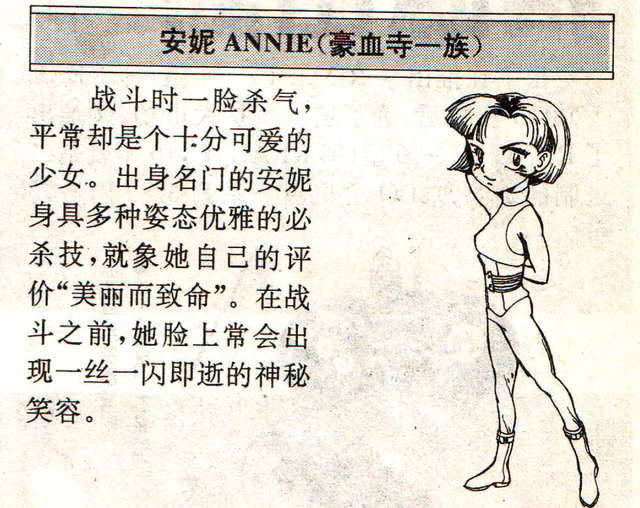 安妮 ANNIE(豪血寺一族)
战斗时一脸杀气，
平常却是个十分可爱的
少女。出身名门的安妮
身具多种姿态优雅的必
杀技，就象她自己的评
价“美丽而致命”。在战
斗之前，她脸上常会出
现一丝一闪即逝的神秘
笑容。